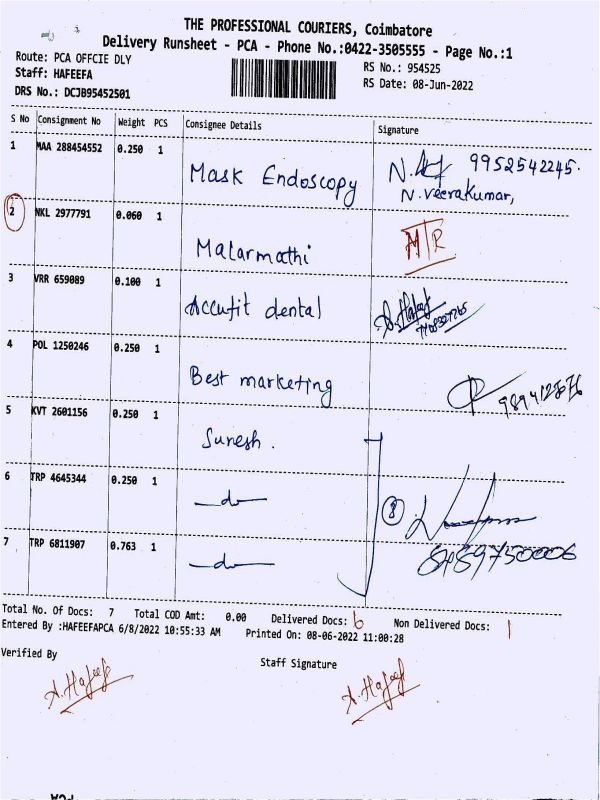 THE PROFESSIONAL COURIERS, Coimbatore
Delivery Runsheet - PCA - Phone No.:0422-3505555 - Page No.:1
Route: PCA OFFCIE DLY
RS No.: 954525
Staff: HAFEEFA
RS Date: 08-Jun-2022
DRS No.: DCJB95452501
S No Consignment No Weight PCS Consignee Details Signature
1 MAA 288454552 0.250 1 Mask Endoscopy 9952542245.
N.veerakumar,
2 NKL 2977791 0.060 1 Malarmathi MTR
3 VRR 659089 0.100 1 Accufit dental
4 POL 1250246 0.250 1 Best marketing
5 KVT 2601156 0.250 1 Suresh.
6 TRP 4645344 0.250 1 -do-
7 TRP 6811907 0.763 1 -do- 8489750006
Total No. Of Docs: 7 Total COD Amt: 0.00 Delivered Docs: 6 Non Delivered Docs: 1
Entered By :HAFEEFAPCA 6/8/2022 10:55:33 AM Printed On: 08-06-2022 11:00:28
Verified By Staff Signature
A.Hafeef A.Hafeef
PCA